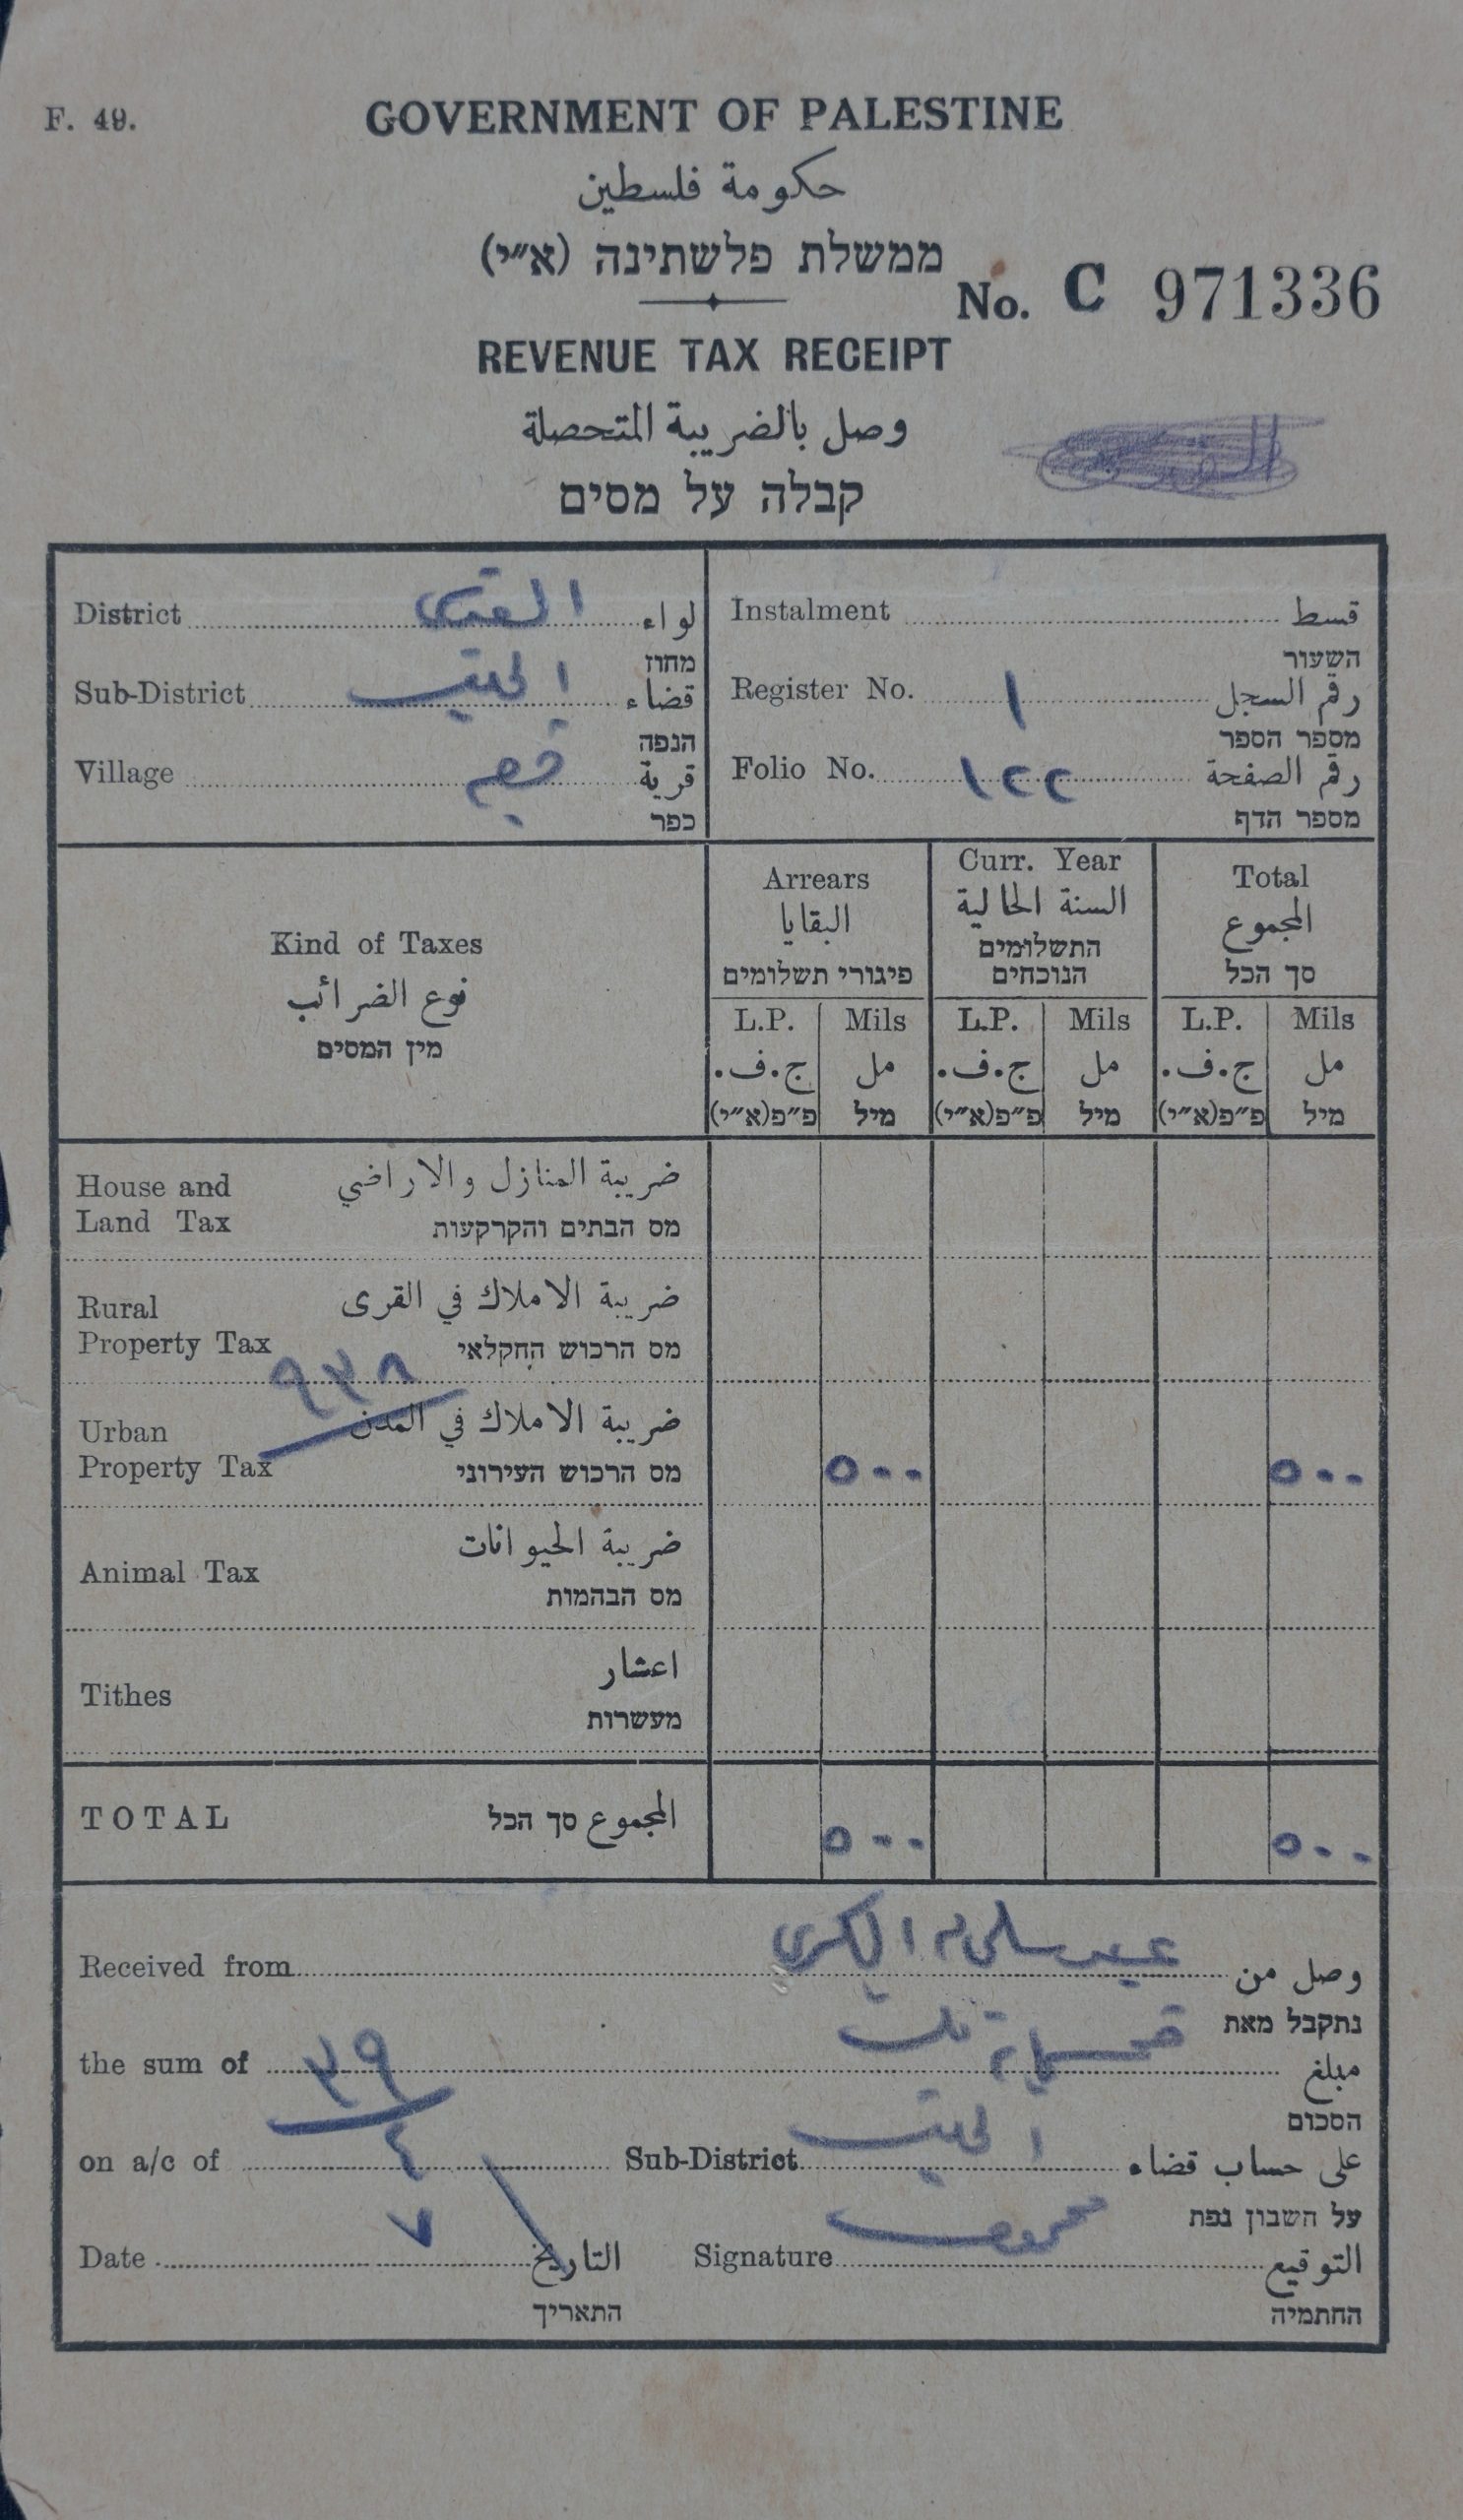 F. 49.
GOVERNMENT OF PALESTINE
حكومة فلسطين
ממשלת פלשתינה (א״י)
No. C 971336
REVENUE TAX RECEIPT
وصل بالضريبة المتحصلة
קבלה על מסים
District القدس لواء
מחוז
Sub-District الخليل قضاء
הנפה
Village قرية
כפר
Instalment قسط
השעור
Register No. ١ رقم السجل
מספר הספר
Folio No. ١٢٢ رقم الصفحة
מספר הדף
Kind of Taxes
نوع الضرائب
מין המסים
Arrears
البقايا
פיגורי תשלומים
Curr. Year
السنة الحالية
התשלומים
הנוכחים
Total
المجموع
סך הכל
L.P. Mils L.P. Mils L.P. Mils
ج.ف. مل ج.ف. مل ج.ف. مل
פ״פ(א״י) מיל פ״פ(א״י) מיל פ״פ(א״י) מיל
House and ضريبة المنازل والاراضي
Land Tax מס הבתים והקרקעות
Rural ضريبة الاملاك في القرى
Property Tax מס הרכוש החקלאי
٩٣٨
Urban ضريبة الاملاك في المدن
Property Tax מס הרכוש העירוני ٥٠٠ ٥٠٠
Animal Tax ضريبة الحيوانات
מס הבהמות
Tithes اعشار
מעשרות
TOTAL المجموع סך הכל ٥٠٠ ٥٠٠
Received from وصل من
נתקבל מאת
the sum of ٣٩ مبلغ
הסכום
on a/c of ٤ Sub-District الخليل على حساب قضاء
על חשבון נפת
Date ٧ التاريخ
התאריך
Signature التوقيع
החתמיה